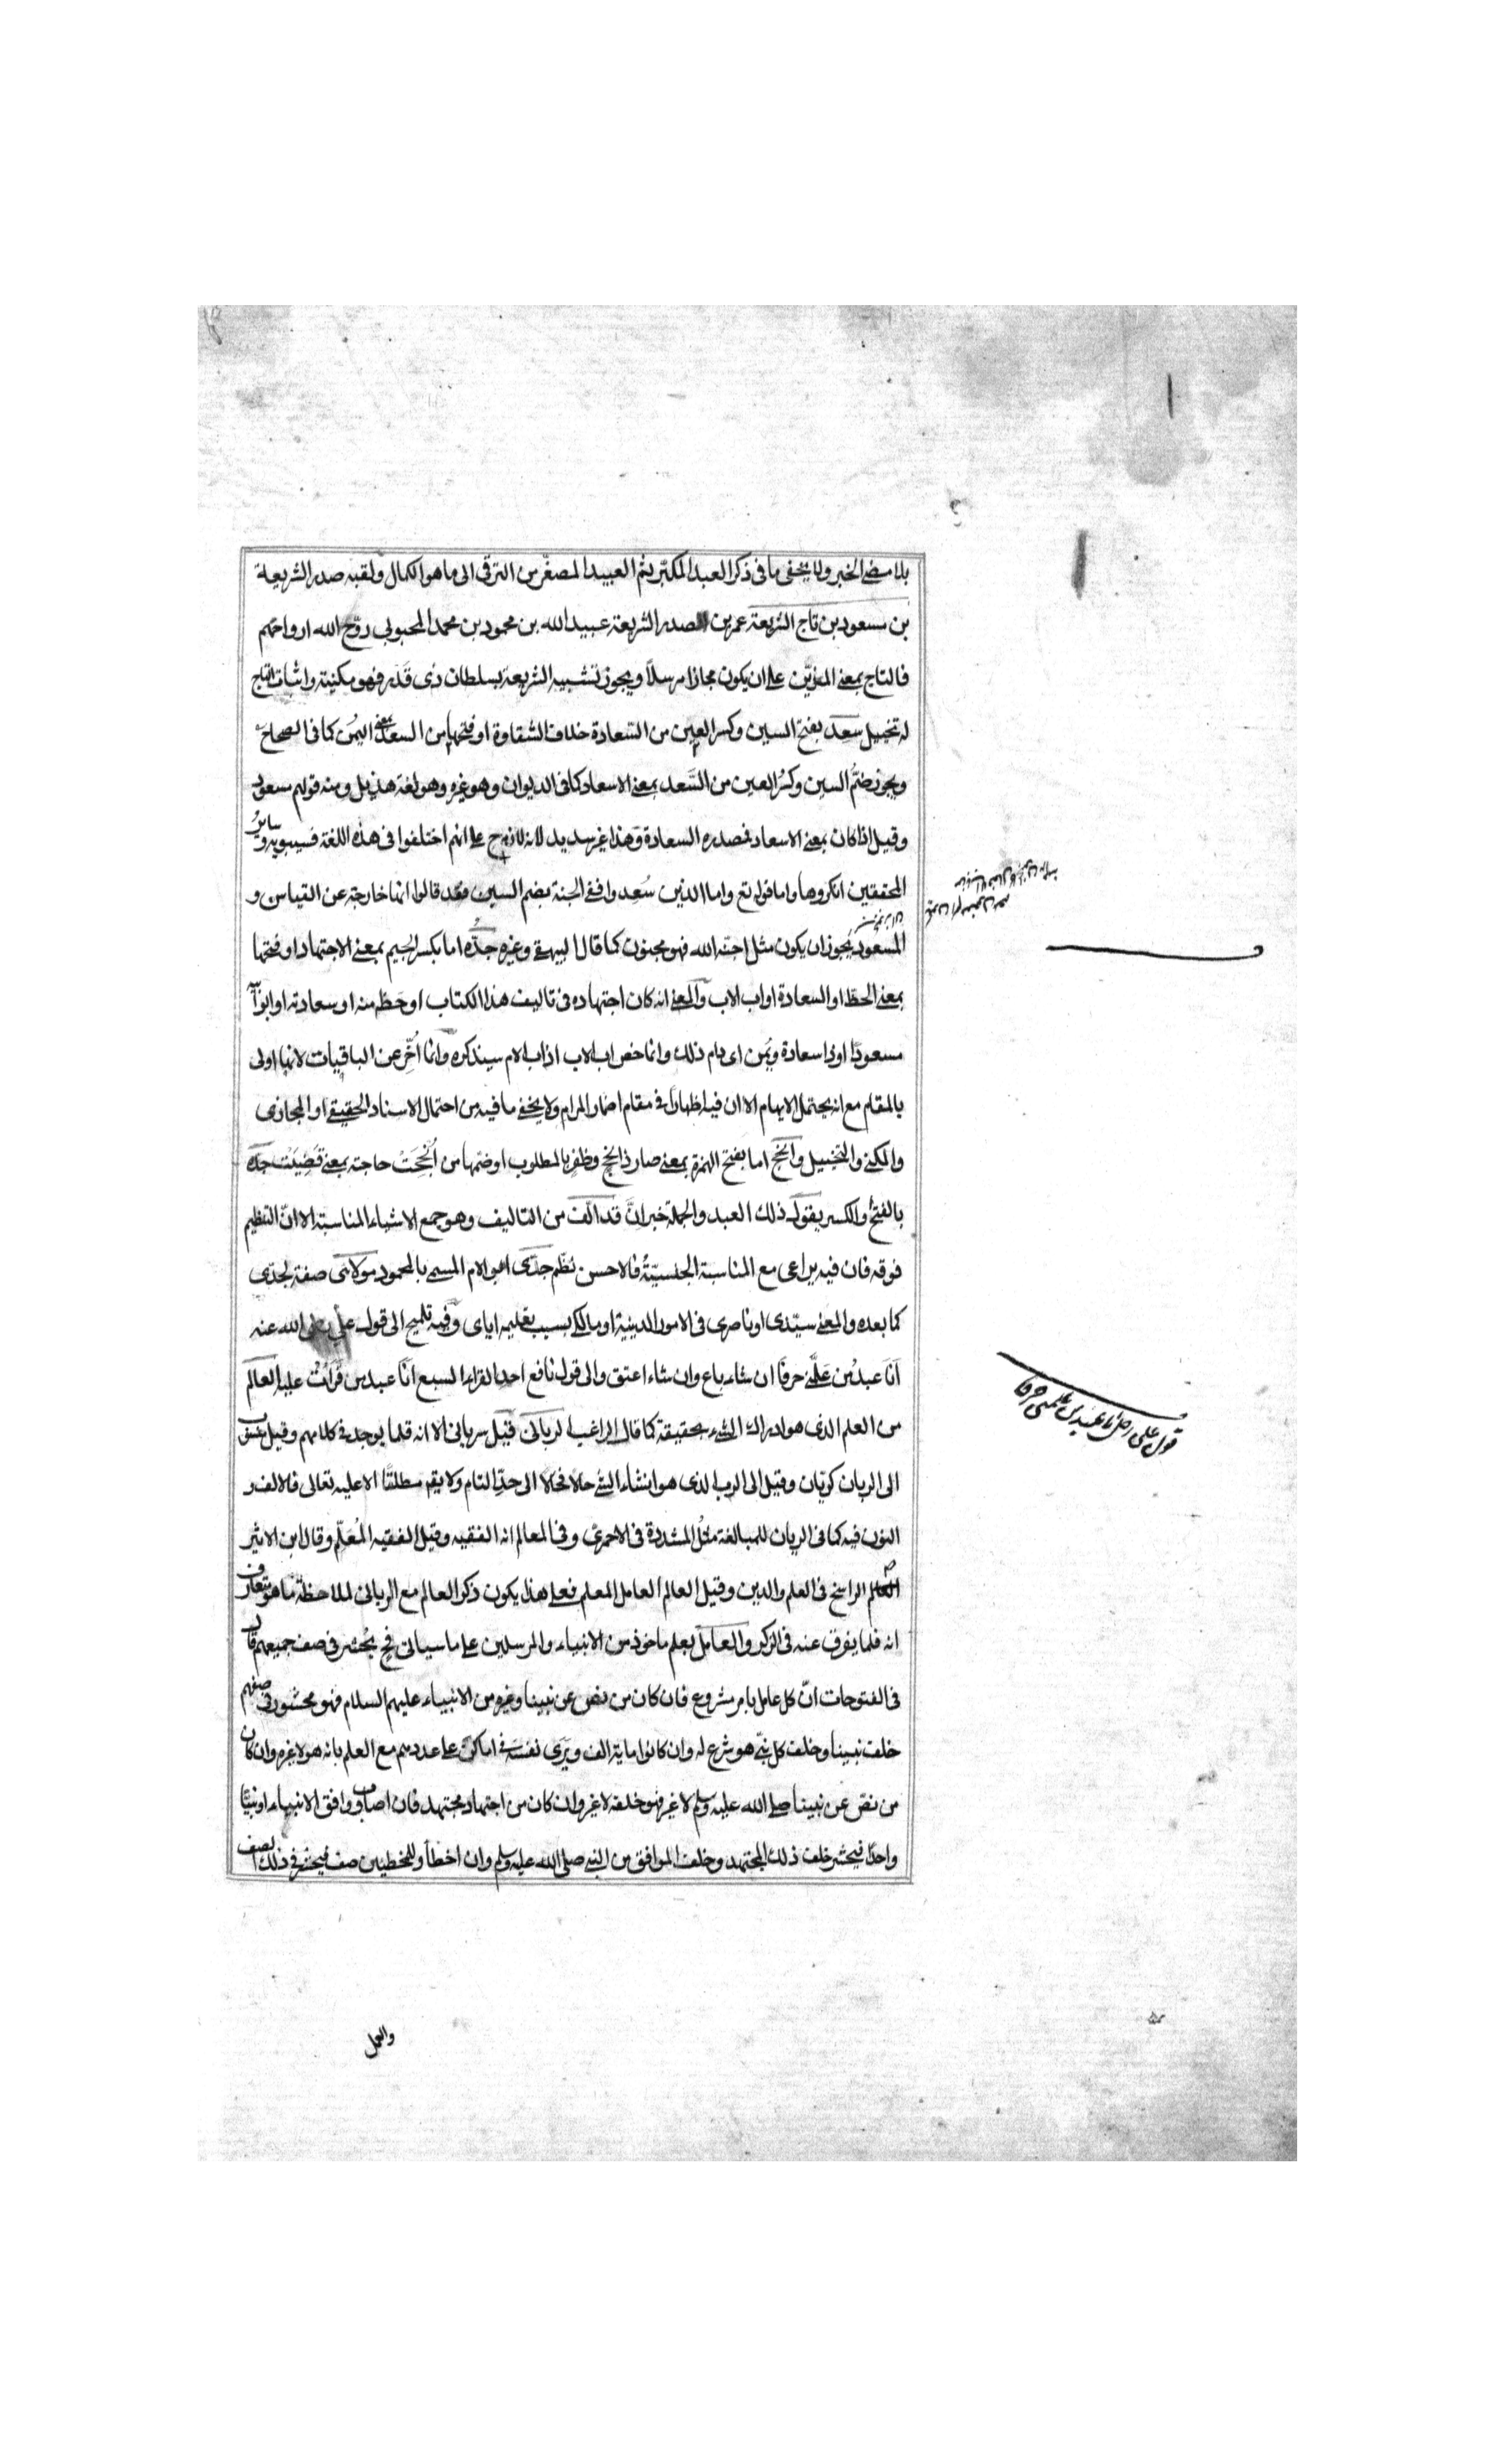 بلا مضى الخبر ولا يخفى ما فى ذكر العبد المكبّر ثم العبيد المصغّر من الترقى الى ما هو الكمال ولقبه صدر الشريعة
بن مسعود بن تاج الشريعة عمر بن صدر الشريعة عبيد الله بن محمود بن محمد المحبوبى روّح الله ارواحهم
فالتاج بمعنى المزيّن على ان يكون مجازا مرسلاً ويجوز تشبيه الشريعة بسلطان ذى قَدَر فهو مكنية واثبات التاج
له تخييل سعد بفتح السين وكسر العين من السّعادة خلاف الشقاوة او فتحها من السعد بمعنى اليُمن كما فى الصحاح
ويجوز ضمُّ السين وكسُر العين من السَّعد بمعنى الاسعاد كما فى الديوان وهو غيره وهو لغة هذيل ومنه قولهم مسعود
وقيل اذا كان بمعنى الاسعاد فمصدره السعادة وهذا غير سديد لانه لازم ح على انهم اختلفوا فى هذه اللغة فسيبويه وسائرُ
المحققين انكروها واما قوله تع واما الذين سُعِدوا ففى الجنة بضم السين فقد قالوا انها خارجة عن القياس و
المسعُود يجوز ان يكون مثل اجنّه الله فهو مجنون كما قال البيهقى وغيره جدّه اما بكسر الجيم بمعنى الاجتهاد او فتحها
بمعنى الحظ او السعادة او اب الاب والمعنى انه كان اجتهاده فى تاليف هذا الكتاب او حَظه منه او سعادته او ابو ابيه
مسعودًا او ذا سعادة ويُمن اى دام ذلك وانما خص اب الاب اذ اب الام سيذكره وانما اُخِّر عن الباقيات لانها اولى
بالمقام مع انه يحتمل الايهام الا ان فيه اظهارا فى مقام اضمار المرام ولا يخفى ما فيه من احتمال الاسناد الحقيقى او المجازى
والمكنى والتخييل وانجح اما بفتح الهمزة بمعنى صار ذا نجح وظفر بالمطلوب او ضمها من اُنجِحَتْ حاجته بمعنى قُضِيَت جدّه
بالفتح والكسر يقول ذلك العبد والجملة خبر انّ قد الّف من التاليف وهو جمع الاشياء المناسبة الا انّ التنظيم
فوقه فان فيه يراعى مع المناسبة الجنسيّةُ فالاحسن نظّم جدّى ابو الام المسمى بالمحمود مولاىَ صفة لجدّى
كما بعده والمعنى سيّدى او ناصرى فى الامور الدينية او مالكى بسبب تعليمه اياى وفيه تلميح الى قول علىّ رضى الله عنه
اَنَا عبدُ من عَلَّمنى حرفًا ان شاء باع وان شاء اعتق والى قول نافع احد القراء السبع انَا عبد من قَرَأتُ عليه العالم
من العلم الذى هو ادراك الشىء بحقيقة كما قال الراغب الربانى قيل سريانى الا انه قلما يوجد فى كلامهم وقيل نسب
الى الربان كريّان وقيل الى الرب الذى هو انشاء الشىء حالا فحالا الى حدّ التام ولا يقع مطلقًا الا عليه تعالى فالالف و
النون فيه كما فى الربان للمبالغة مثلُ المشددة فى الاحمرىّ وفى المعالم انه الفقيه وقيل الفقيه المُعَلّم وقال ابن الاثير
العالم الراسخ فى العلم والدين وقيل العالم العامل المعلم فعلى هذا يكون ذكر العالم مع الربانى لملاحظة ما هو متعارف
انه فلما يفرق عنه فى الذكر والعامل بعلم ماخوذ من الانبياء والمرسلين على ما سياتى فح يُحشر فى صف جميعهم قال
فى الفتوحات انّ كل عامل بامر مشروع فان كان من نص عن نبينا وغيره من الانبياء عليهم السلام فهو محشور فى صفهم
خلف نبينا وخلف كل نبىّ هو شرع له وان كانوا ماية الف ويرى نفسَه فى اماكن على عددهم مع العلم بانه هو لا غيره وان كان
من نصّ عن نبينا صلى الله عليه وسلم لا غير فهو خلفه لا غير وان كان من اجتهاد مجتهد فان اصاب ووافق الانبياء او نبيًا
واحدًا فيحشر خلف ذلك المجتهد وخلف الموافق من النبى صلى الله عليه وسلم وان اخطأ وللمخطئين صف فيحشر فى ذلك الصف
قول على رضى انا عبد من علمنى حرفا
والعمل